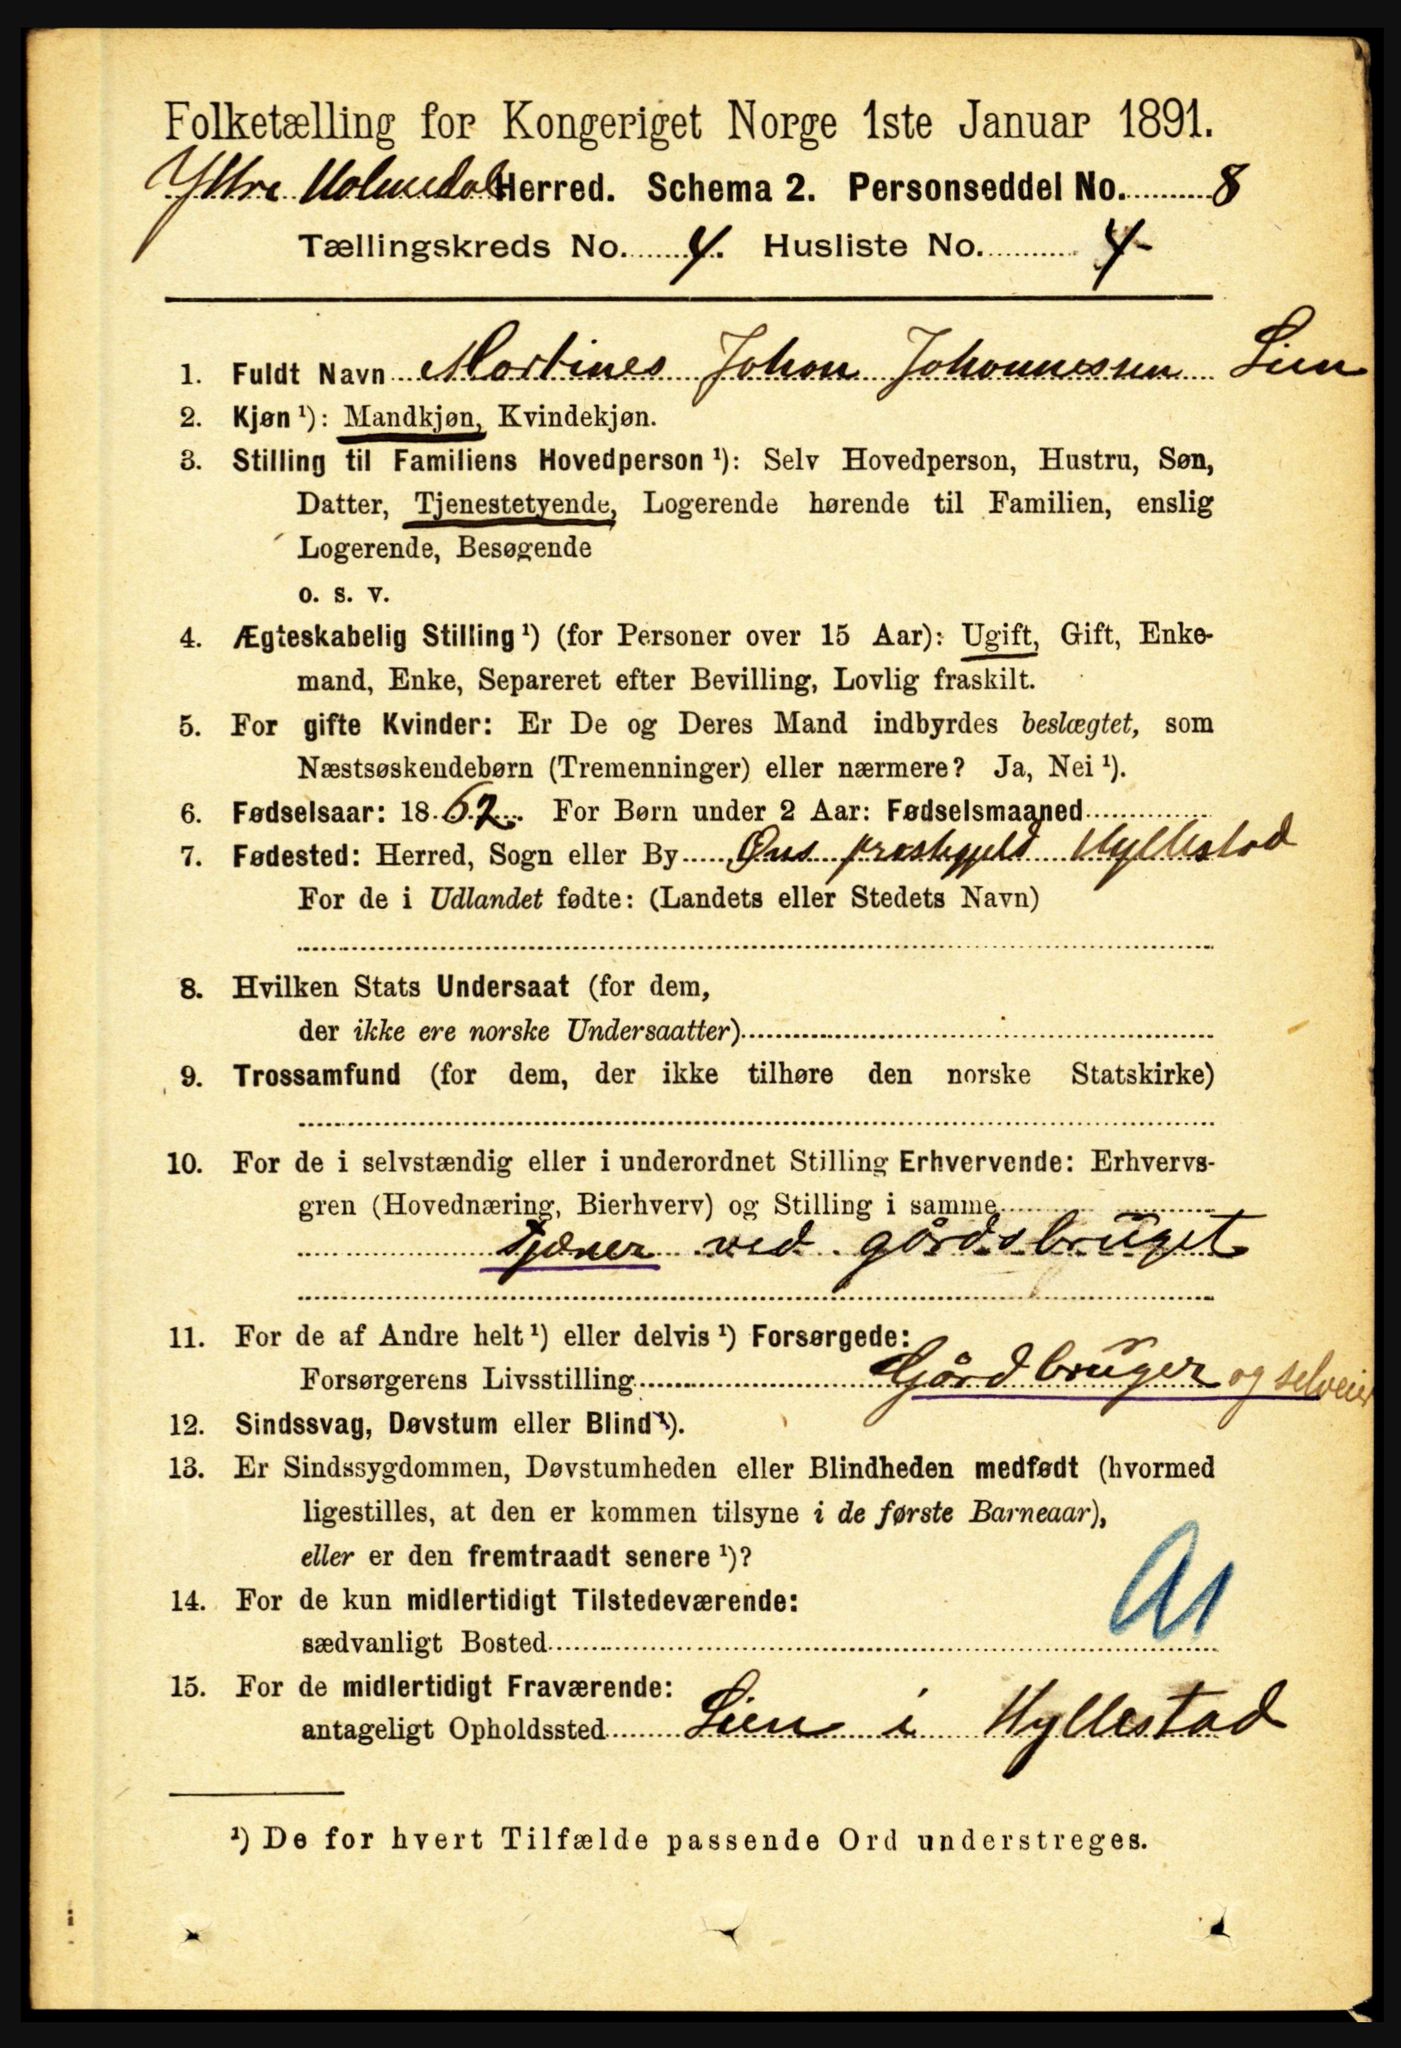 Folketælling for Kongeriget Norge 1ste Januar 1891.
Yttre Holmedal Herred. Schema 2. Personseddel No. 8
Tællingskreds No. 4. Husliste No. 4
1. Fuldt Navn Martines Johan Johannesen Lien
2. Kjøn ¹): Mandkjøn, Kvindekjøn.
3. Stilling til Familiens Hovedperson ¹): Selv Hovedperson, Hustru, Søn,
Datter, Tjenestetyende, Logerende hørende til Familien, enslig
Logerende, Besøgende
o. s. v.
4. Ægteskabelig Stilling ¹) (for Personer over 15 Aar): Ugift, Gift, Enke-
mand, Enke, Separeret efter Bevilling, Lovlig fraskilt.
5. For gifte Kvinder: Er De og Deres Mand indbyrdes beslægtet, som
Næstsøskendebørn (Tremenninger) eller nærmere? Ja, Nei ¹).
6. Fødselsaar: 1862. For Børn under 2 Aar: Fødselsmaaned
7. Fødested: Herred, Sogn eller By Øns prestegjeld Hyllestad
For de i Udlandet fødte: (Landets eller Stedets Navn)
8. Hvilken Stats Undersaat (for dem,
der ikke ere norske Undersaatter)
9. Trossamfund (for dem, der ikke tilhøre den norske Statskirke)
10. For de i selvstændig eller i underordnet Stilling Erhvervende: Erhvervs-
gren (Hovednæring, Bierhverv) og Stilling i samme
Tjæner ved gårdsbruget
11. For de af Andre helt ¹) eller delvis ¹) Forsørgede:
Forsørgerens Livsstilling Gårdbruger og selveier
12. Sindssvag, Døvstum eller Blind ¹).
13. Er Sindssygdommen, Døvstumheden eller Blindheden medfødt (hvormed
ligestilles, at den er kommen tilsyne i de første Barneaar),
eller er den fremtraadt senere ¹)?
14. For de kun midlertidigt Tilstedeværende:
sædvanligt Bosted
15. For de midlertidigt Fraværende:
antageligt Opholdssted Lien i Hyllestad
¹) De for hvert Tilfælde passende Ord understreges.